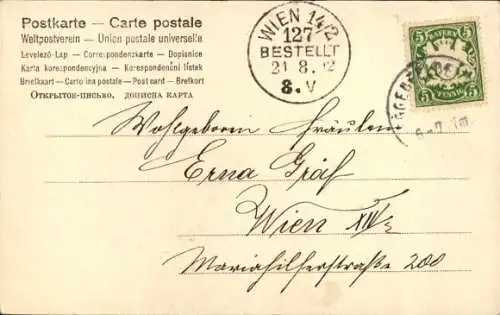 Postkarte — Carte postale
Weltpostverein — Union postale universelle
Levelező-Lap — Correspondenzkarte — Dopisnice
Karta korespondencyjna — Korespondenční lístek
Briefkaart — Cartolina postale — Post card — Brefkort
Открытое-письмо, дописна карта
WIEN 14/2
127
BESTELLT
21 8. 02
8. V
BAYERN
5 5
5 5
6-7 Nm
Wohlgeboren Fräulein
Erna Gräf
Wien XIV/2
Mariahilferstraße 208